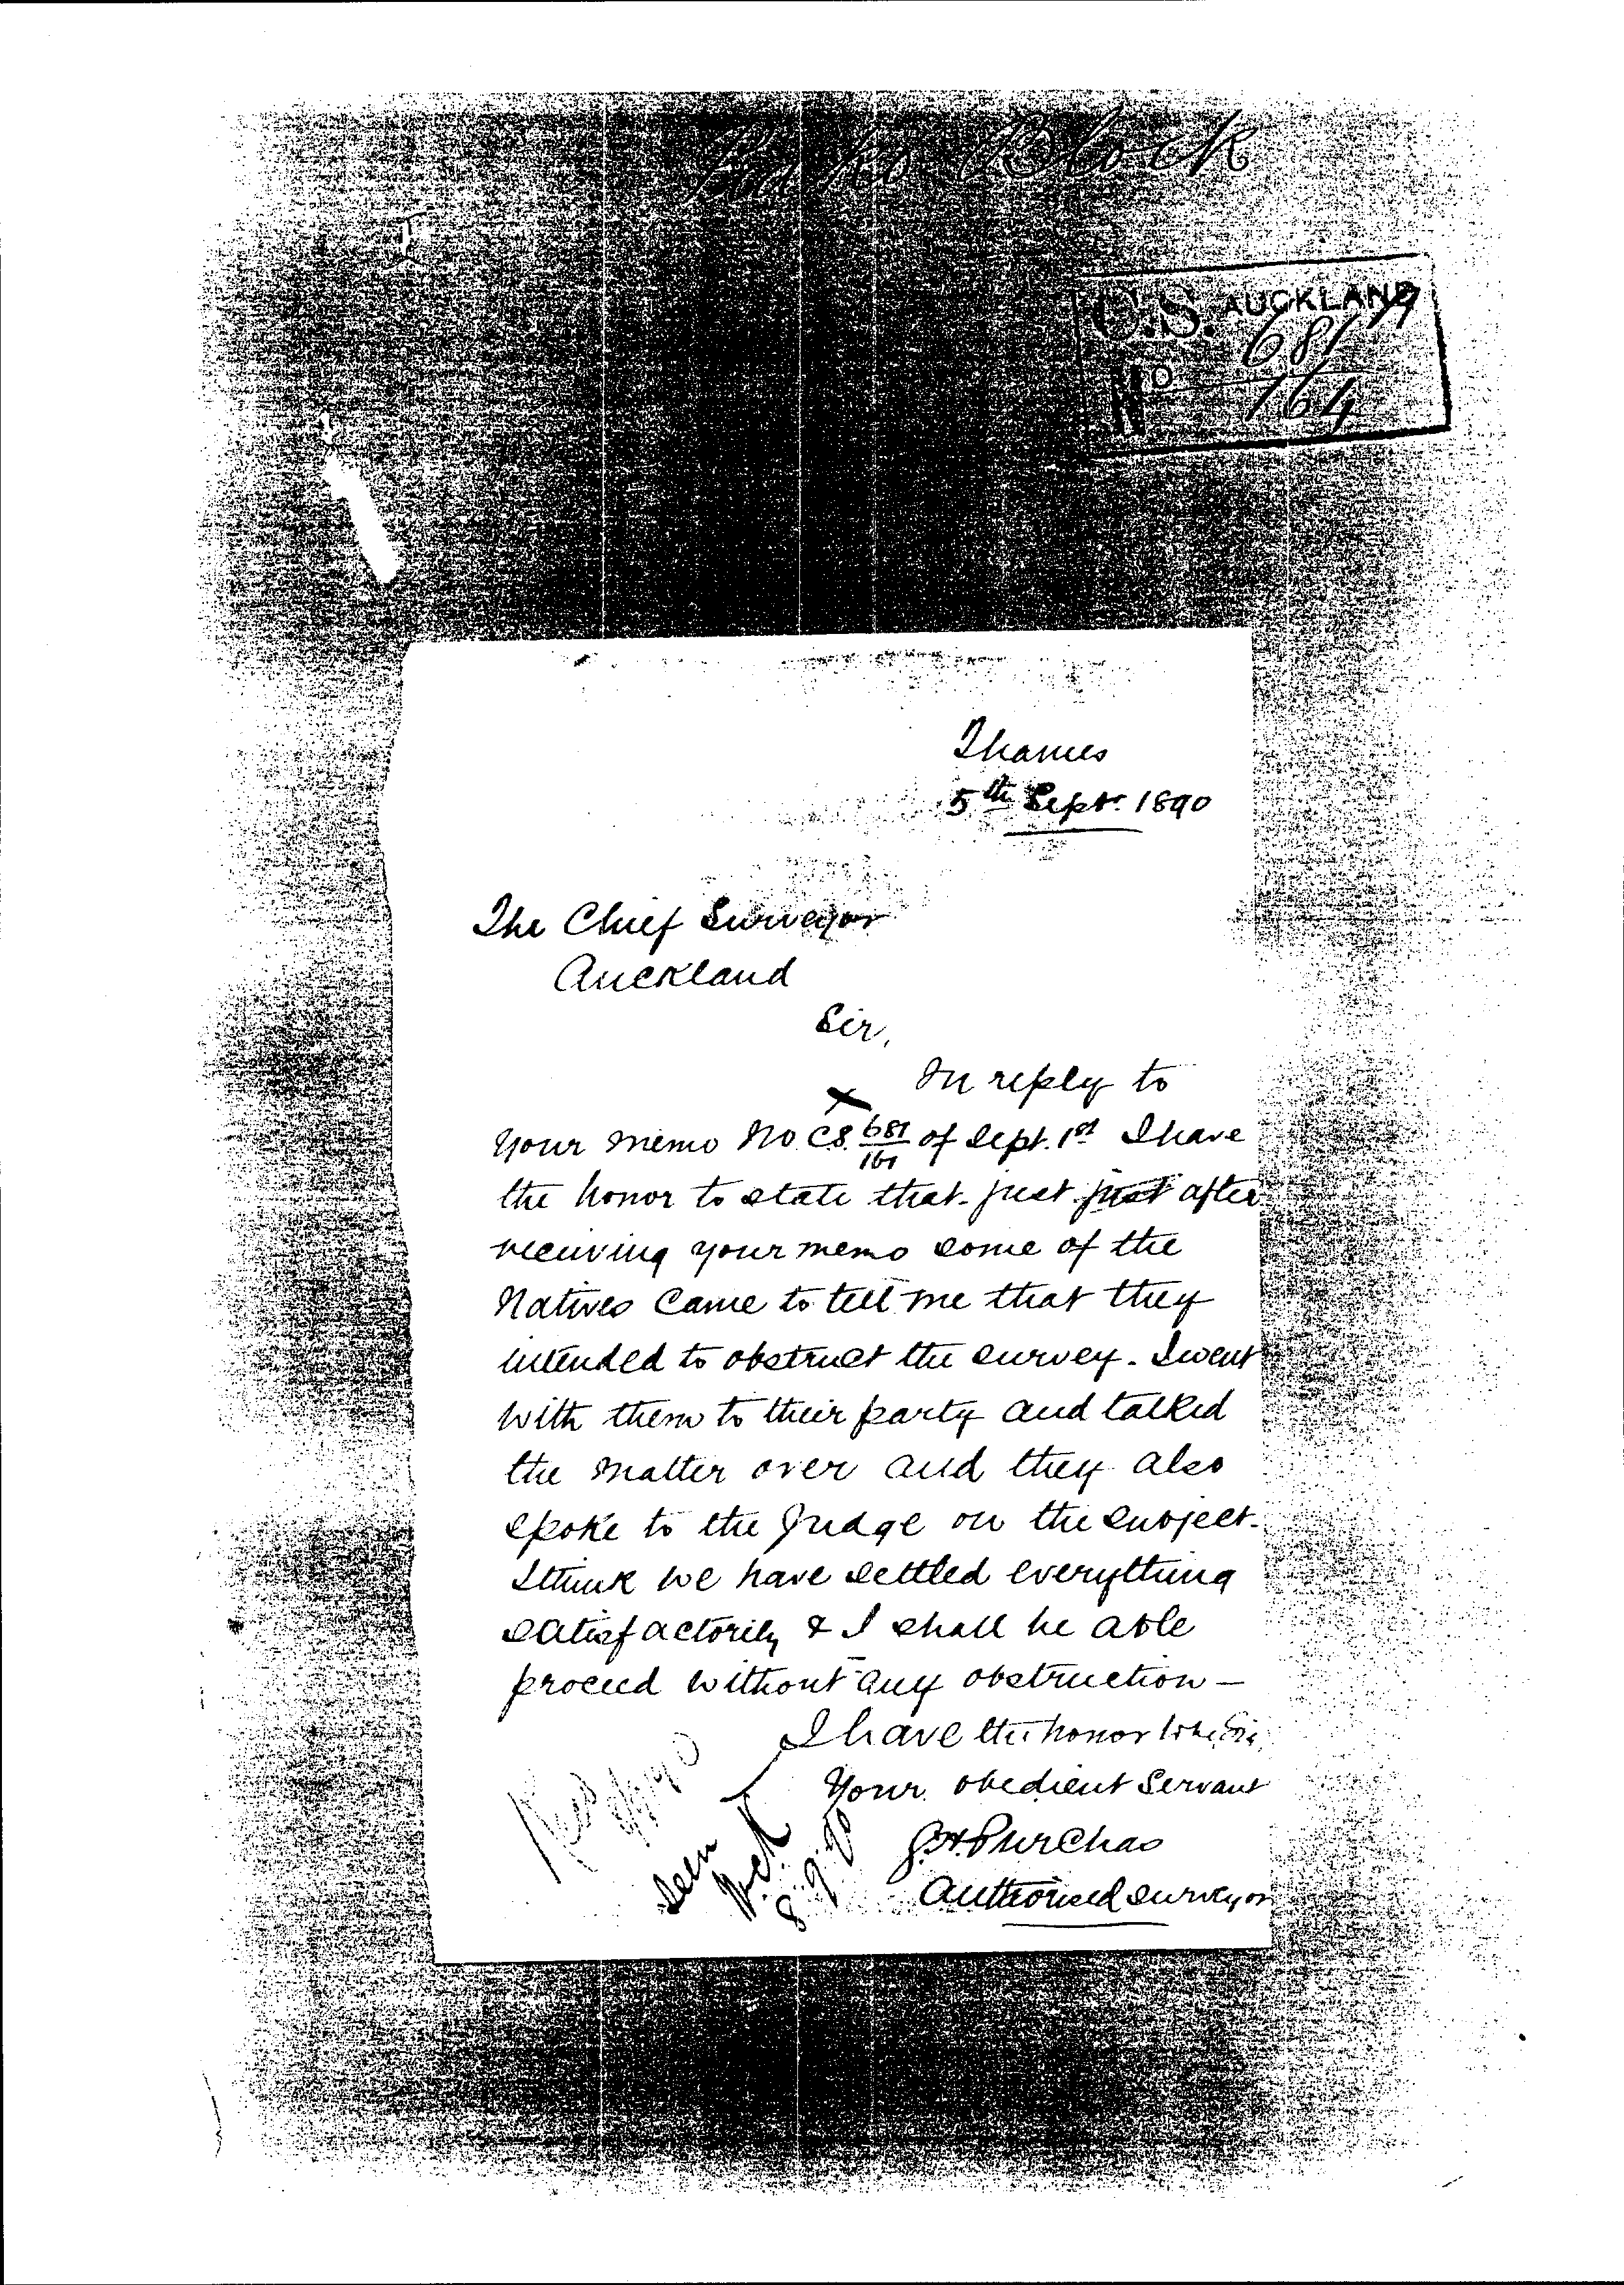 Block
C.S. AUCKLAND
No 681
164
Thames
5th Sept. 1890
The Chief Surveyor
Auckland
Sir,
In reply to
your memo No C.S. 681/161 of Sept. 1st I have
the honor to state that just just after
receiving your memo some of the
Natives came to tell me that they
intended to obstruct the survey. I went
with them to their party and talked
the matter over and they also
spoke to the Judge on the subject.
I think we have settled everything
satisfactorily & I shall be able
proceed without any obstruction —
I have the honor to be Sir,
Your obedient Servant
Purchas
Authorised Surveyor
Seen
8.9.90